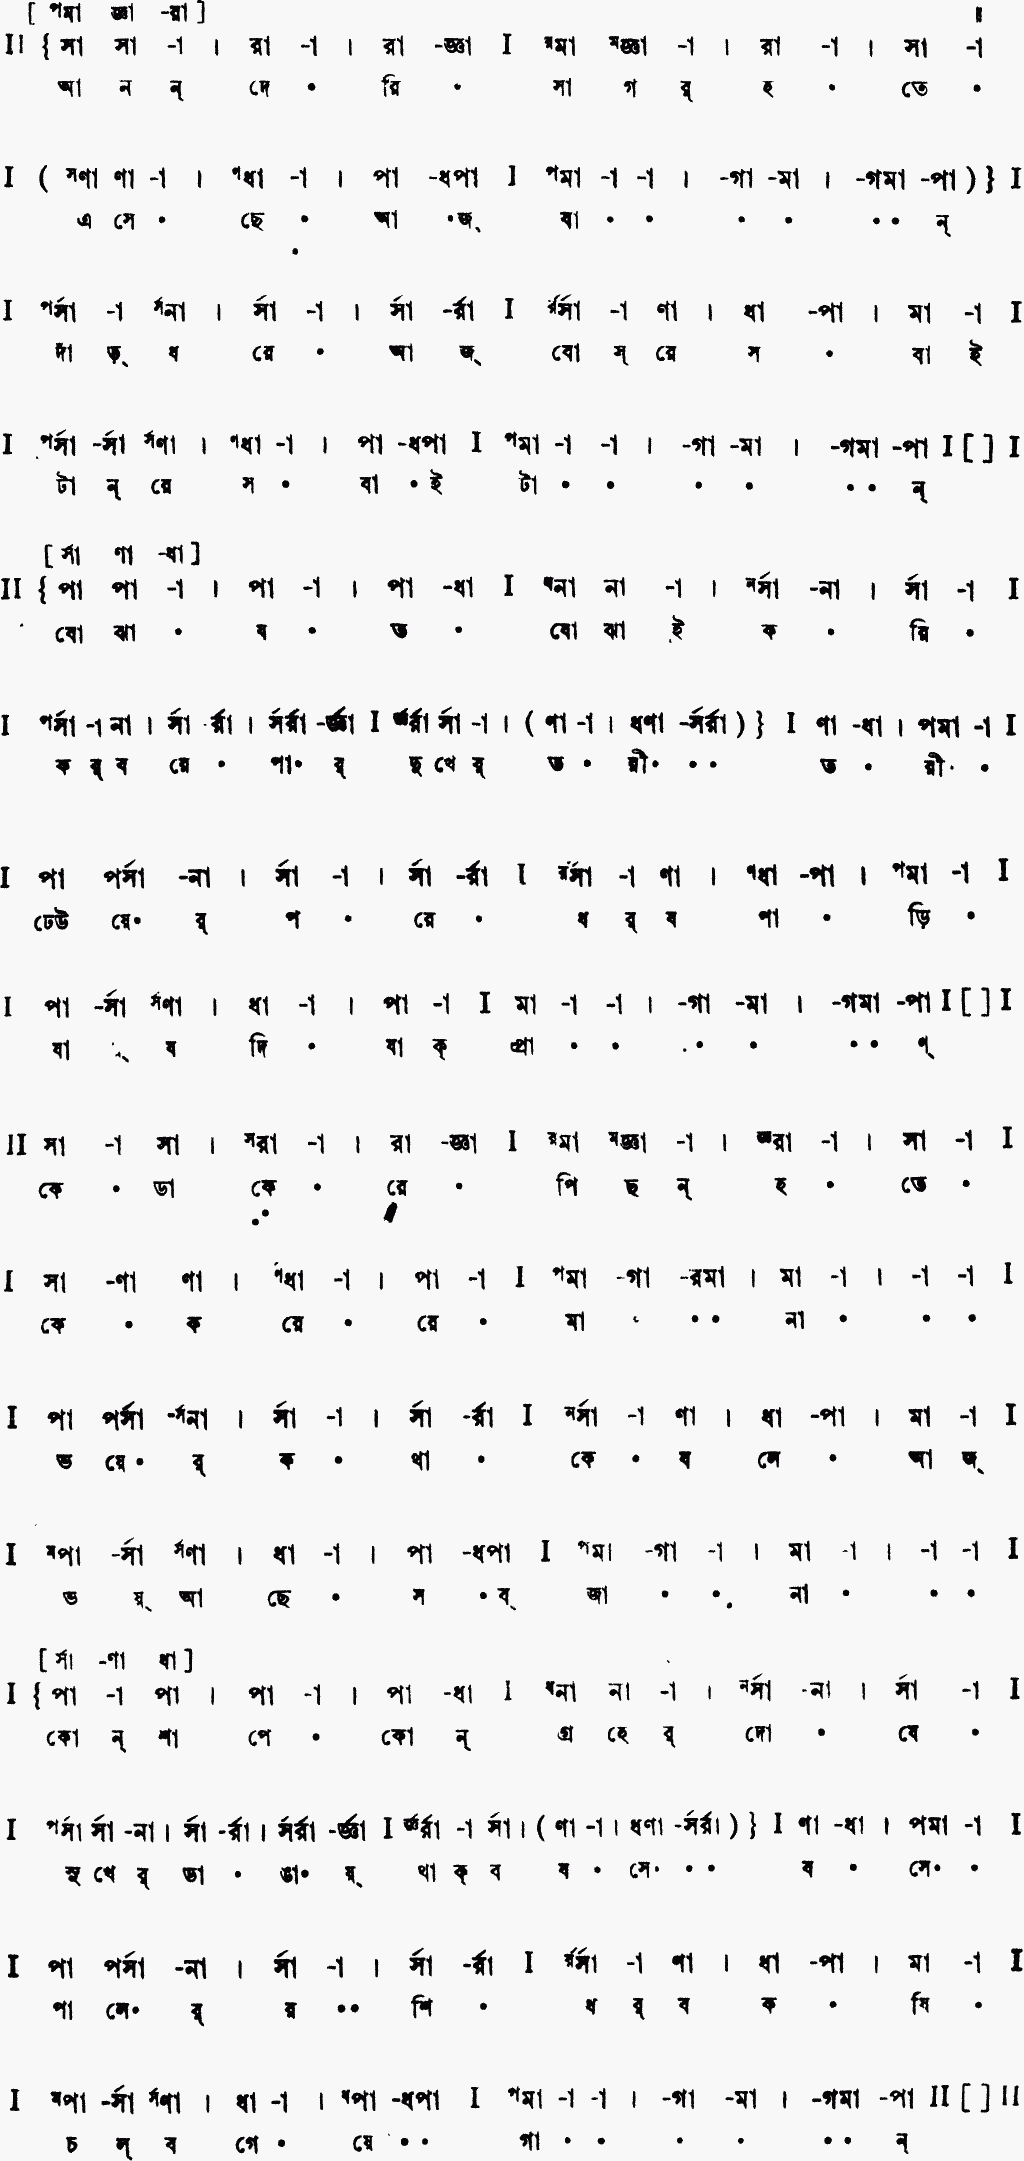 [ পমা জ্ঞা -রা ] ॥
II { সা সা -া । রা -া । রা -জ্ঞা I রমা মজ্ঞা -া । রা -া । সা -া
আ ন ন্ দে • রি • সা গ র্ হ • তে •
I ( সণা ণা -া । ণধা -া । পা -ধপা I পমা -া -া । -গা -মা । -গমা -পা ) } I
এ সে • ছে • আ •জ্ বা • • • • •• ন্
I পর্সা -া র্সনা । র্সা -া । র্সা -র্রা I র্রর্সা -া ণা । ধা -পা । মা -া I
দাঁ ড়্ ধ রে • আ জ্ বো স্ রে স • বা ই
I পর্সা -র্সা র্সণা । ণধা -া । পা -ধপা I পমা -া -া । -গা -মা । -গমা -পা I [ ] I
টা ন্ রে স • বা •ই টা • • • • •• ন্
[ র্সা ণা -ধা ]
II { পা পা -া । পা -া । পা -ধা I ধনা না -া । নর্সা -না । র্সা -া I
বো ঝা • য • ত • বো ঝা ই ক • রি •
I পর্সা -া না । র্সা -র্রা । র্সর্রা -র্জ্ঞা I র্জ্ঞর্রা র্সা -া । ( ণা -া । ধণা -র্সর্রা ) } I ণা -ধা । পমা -া I
ক র্ ব রে • পা• র্ দু খে র্ ত • রী• •• ত • রী• •
I পা পর্সা -না । র্সা -া । র্সা -র্রা I র্রর্সা -া ণা । ণধা -পা । পমা -া I
ঢেউ য়ে• র্ প • রে • ধ র্ ব পা • ড়ি •
I পা -র্সা র্সণা । ধা -া । পা -া I মা -া -া । -গা -মা । -গমা -পা I [ ] I
যা য্ য দি • যা ক্ প্রা • • • • •• ণ্
II সা -া সা । সরা -া । রা -জ্ঞা I রমা মজ্ঞা -া । জ্ঞরা -া । সা -া I
কে • ডা কে • রে • পি ছ ন্ হ • তে •
I সা -ণা ণা । ণধা -া । পা -া I পমা -গা -রমা । মা -া । -া -া I
কে • ক রে • রে • মা • •• না • • •
I পা পর্সা -র্সনা । র্সা -া । র্সা -র্রা I নর্সা -া ণা । ধা -পা । মা -া I
ভ য়ে• র্ ক • থা • কে • ব লে • আ জ্
I মপা -র্সা র্সণা । ধা -া । পা -ধপা I পমা -গা -া । মা -া । -া -া I
ভ য়্ আ ছে • স •ব্ জা • • না • • •
[ র্সা -ণা ধা ]
I { পা -া পা । পা -া । পা -ধা I ধনা না -া । নর্সা -না । র্সা -া I
কো ন্ শা পে • কো ন্ গ্র হে র্ দো • ষে •
I পর্সা র্সা -না । র্সা -র্রা । র্সর্রা -র্জ্ঞা I র্জ্ঞর্রা -া র্সা । ( ণা -া । ধণা -র্সর্রা ) } I ণা -ধা । পমা -া I
সু খে র্ ডা • ঙা• য়্ থা ক্ ব ব • সে• •• ব • সে• •
I পা পর্সা -না । র্সা -া । র্সা -র্রা I র্রর্সা -া ণা । ধা -পা । মা -া I
পা লে• র্ র •• শি • ধ র্ ব ক • ষি •
I মপা -র্সা র্সণা । ধা -া । ধপা -ধপা I পমা -া -া । -গা -মা । -গমা -পা II [ ] II
চ ল্ ব গে • য়ে •• গা • • • • •• ন্